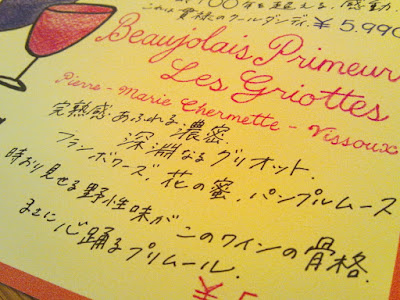 100年を超える、感動
これは貴様のクールダンディ。¥5.990
Beaujolais Primeur
Les Griottes
Pierre-Marie Chermette-Vissoux
完熟感あふれる濃密.
深淵なるグリオット.
フランボワーズ, 花の蜜, パンプルムース
時おり見せる野性味が このワインの骨格.
まさに心踊るプリムール.
¥5